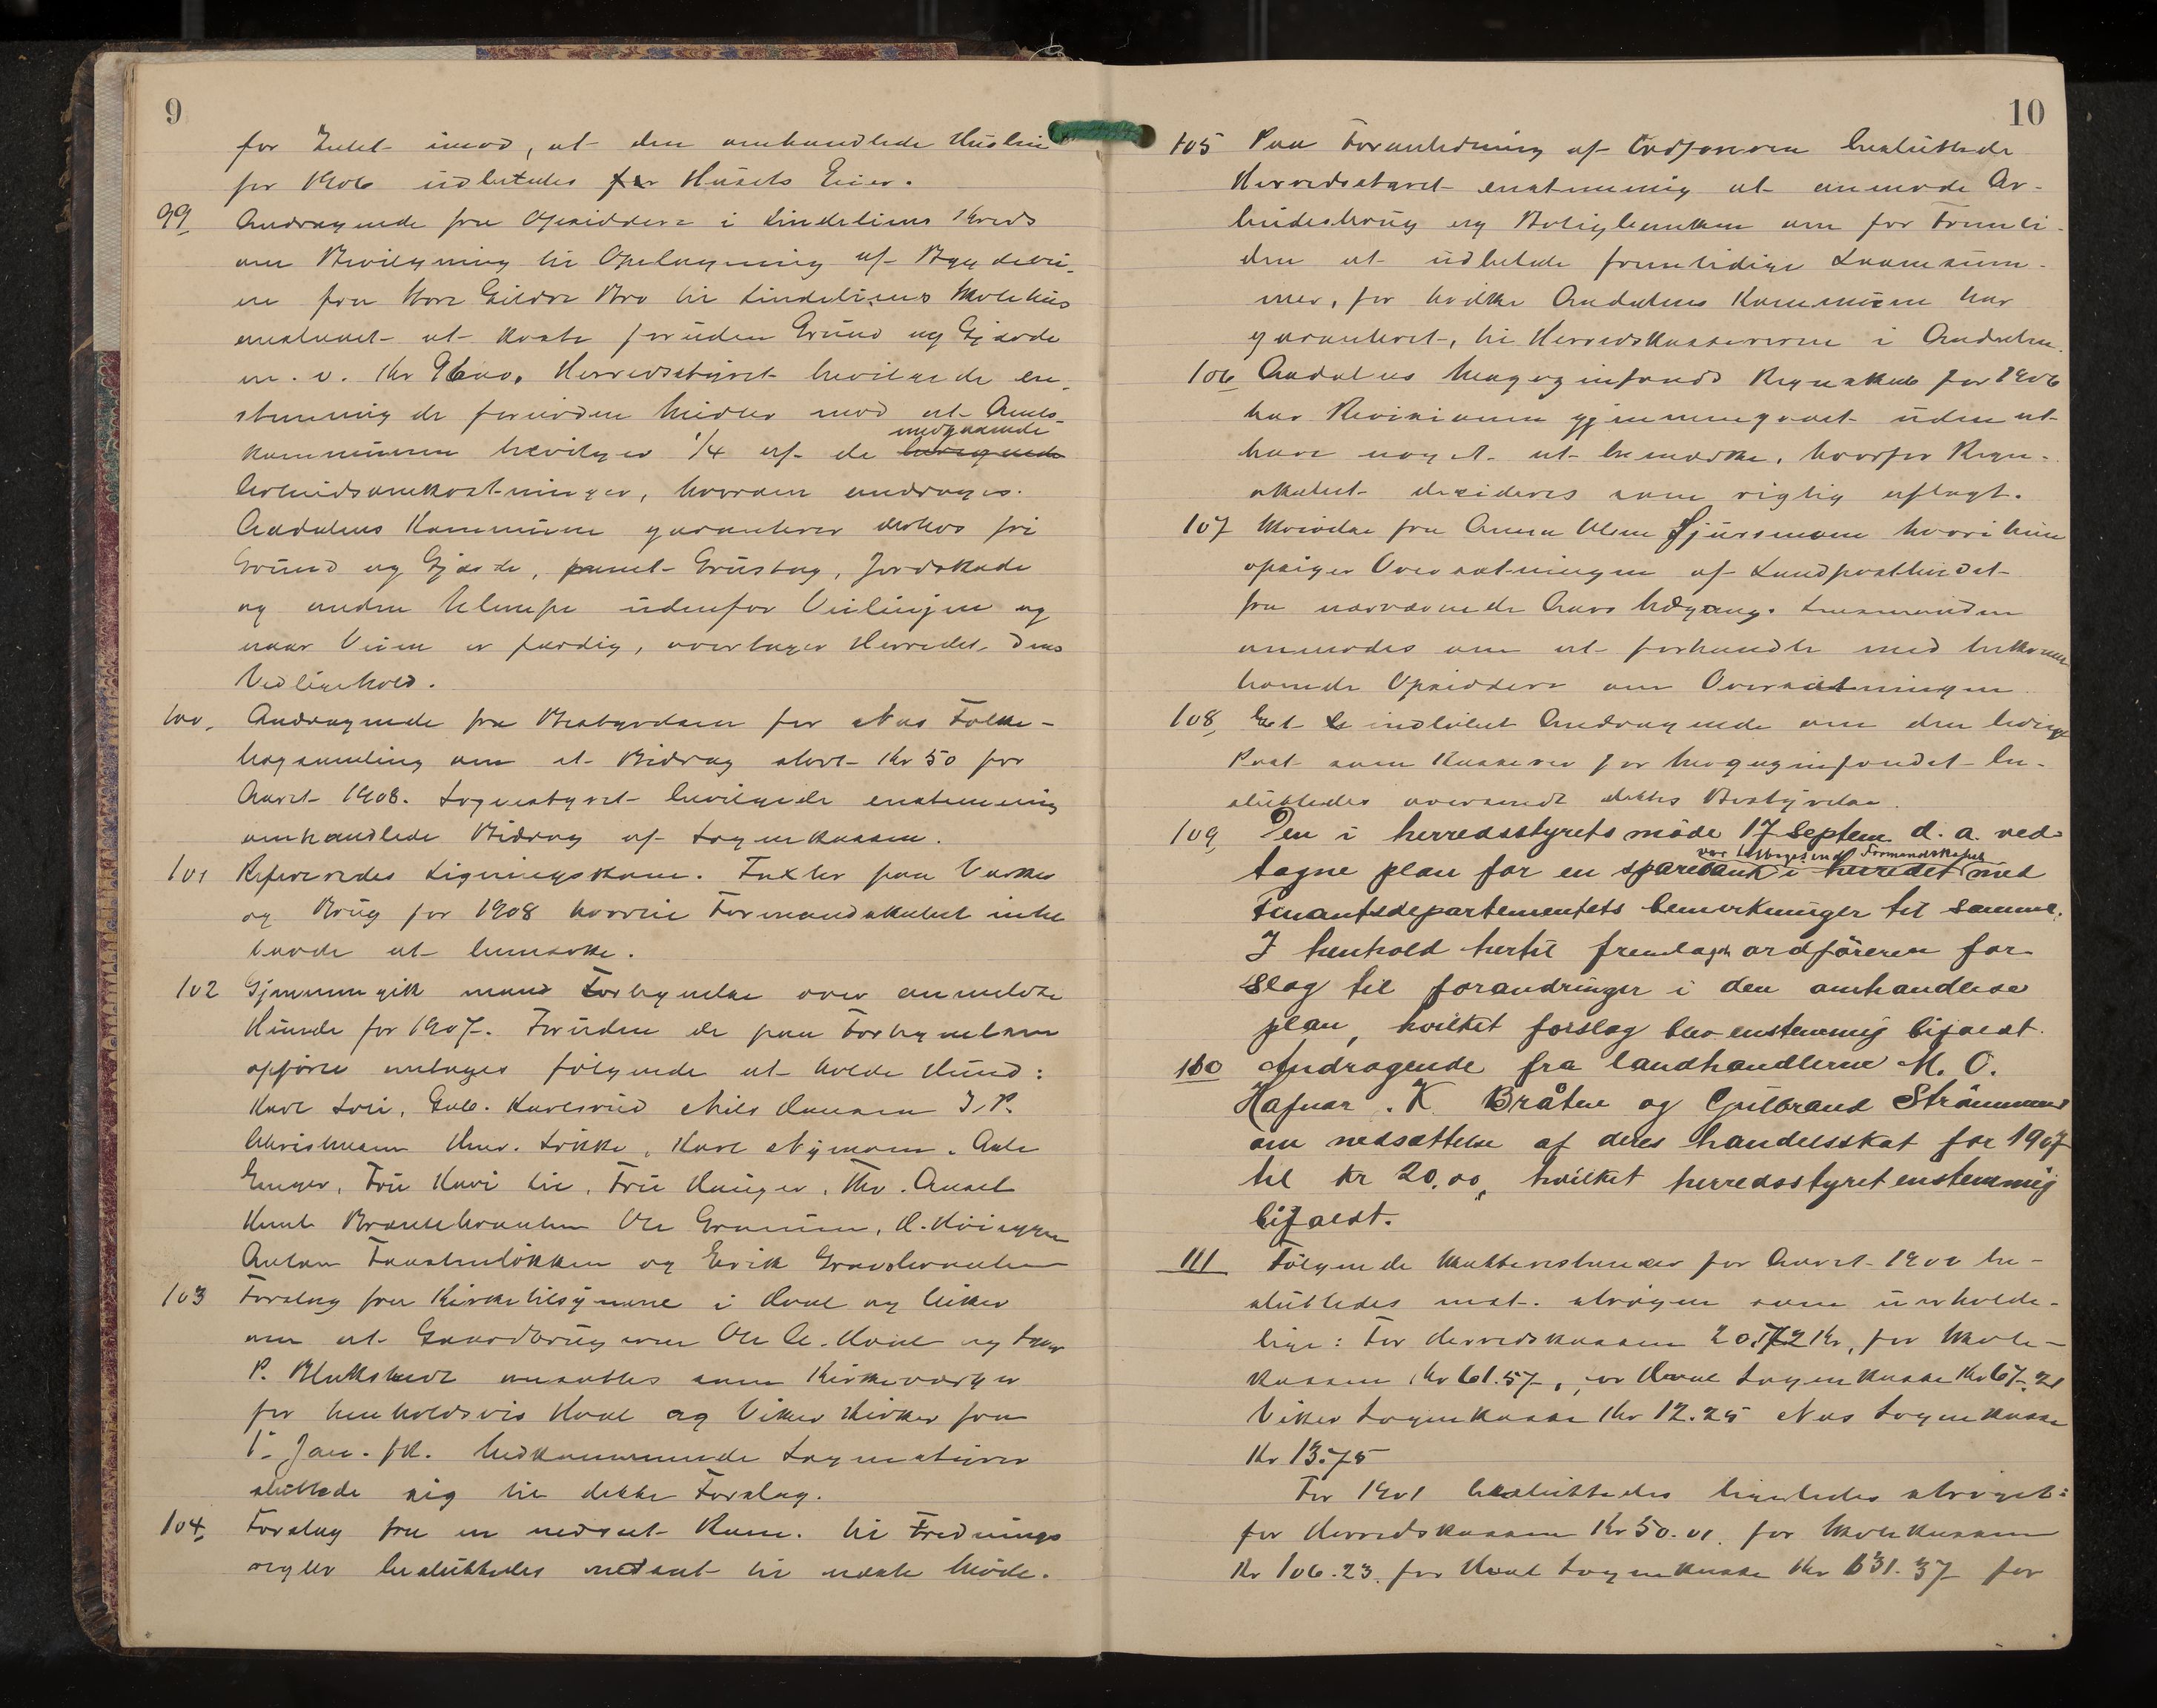 9
for Intet imod, at den omhandlede Husleie
for 1906 udbetales før Husets Eier.
99 Andragende fra Opsiddere i Lindeliens Kreds
om Bevilgning til Oparbeidning af Bygdevei
en fra Nore Gildre Bro til Lindeliens Skolehus
anslaaet at koste foruden Grund og Gjærde
m. v. Kr 9600. Herredsstyret bevilgede en-
stemmig de fornødne Midler mod at Amts-
medgaaende
kommunen bevilger 1/4 af de
Arbeidsomkostninger, hvorom andrages.
Aadalens Kommune garanterer derhos fri
Grund og Gjærde, samt Grustag, Jordskade
og anden Ulempe udenfor Veilinjen og
naar Veien er færdig, overtager Herredet dens
Vedligehold.
100. Andragende fra Bestyrelsen for Næs Folke-
bogsamling om et Bidrag stort Kr 50 for
Aaret 1908. Sognestyret bevilgede enstemmig
omhandlede Bidrag af Sognekassen.
101 Refereredes Ligningskom. Taxter paa Værker
og Brug for 1908 hvortil Formandskabet intet
havde at bemærke.
102 Gjennemgik man Fortegnelse over anmeldte
Hunde for 1907. Foruden de paa Fortegnelsen
opførte antages følgende at holde Hund:
Karl Lori, Gulb. Karlsrud Nils Hansen I. P.
Christensen Hmd. Løkke, Karl Nymoen. Ante
Enger, Fru Kari Lie, Fru Hauger, Thv. Ansel
Knut Brændebraaten Ole Granum, H. Høieggen
Anton Tandbergløkken og Erik Gravlibraaten
103 Forslag fra Kirketilsynene i Hval og Viker
om at Gaardbrugerne Ole A. Hval og Lars
P. Blakstvedt ansættes som Kirkeværger
for henholdsvis Hval og Viker Kirker fra
1. Jan. f.A. Vedkommende Sognestyrer
sluttede sig til dette Forslag.
104. Forslag fra en nedsat Kom. til Frednings
regler besluttedes udsat til næste Møde.
10
105 Paa Foranledning af Ordføreren besluttede
Herredsstyret enstemmig at anmode Ar-
beiderbrug og Boligbanken om for Fremti-
den at udbetale fremtidige Laanesum-
mer, for hvilke Aadalens Kommune har
garanteret, til Herredskassereren i Aadalen.
106 Aadalens Magazinfonds Regnskab for 1906
har Revisionen gjennemgaaet uden at
have noget at bemærke, hvorfor Regn-
skabet decideres som rigtig aflagt.
107 Skrivelse fra Anna Olsen Sjursmoen hvori hun
opsiger Oversætningen af Landpostbudet
fra nærværende Aars Udgang. Lensmanden
anmodes om at forhandle med vedkom-
mende Opsiddere om Oversætningen.
108 Et indløbet Andragende om den ledige
Post som Kasserer for Magazinfondet be-
sluttedes oversendt dettes Bestyrelse.
109 Den i herredsstyrets møde 17 Septem d. a. ved-
var tilbagesendt Formandskabet
tagne plan for en sparebank i herredet med
Finantsdepartementets bemerkninger til samme.
I henhold hertil fremlagde ordføreren for-
slag til forandringer i den omhandlede
plan, hvilket forslag blev enstemmig bifaldt.
110 Andragende fra landhandlerne M. O.
Hafnor. K. Bråten og Gulbrand Strømmen
om nedsættelse af deres handelsskat for 1907
til kr 20.00, hvilket herredsstyret enstemmig
bifaldt.
111 Følgende Skatterestancer for Aaret 1900 be-
sluttedes strøgne som uerholde-
lige: For Herredskassen 20.72 Kr, for Skole-
kassen Kr 61.57, for Hval Sognekasse Kr 67.21
Viker Sognekasse Kr 12.25 Næs Sognekasse
Kr 13.75
For 1901 besluttedes ligeledes strøget:
for Herredskassen Kr 50.01. for Skolekassen
Kr 106.23. for Hval Sognekasse Kr 131.37 for